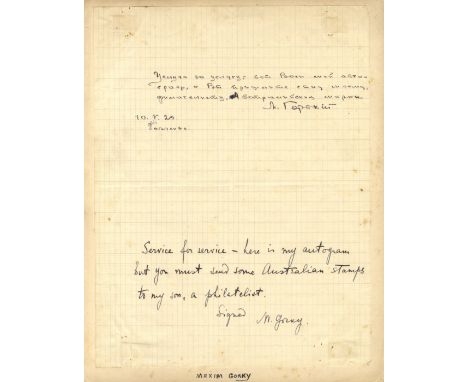 Услуга за услугу: вот Вам мой авто-
граф, а Вы пришлите сыну моему,
филателисту, Австралийских марок.
М. Горький
10. V. 25
Service for service – here is my autogram
but you must send some Australian stamps
to my son, a philatelist.
Signed M. Gorky.
MAXIM GORKY